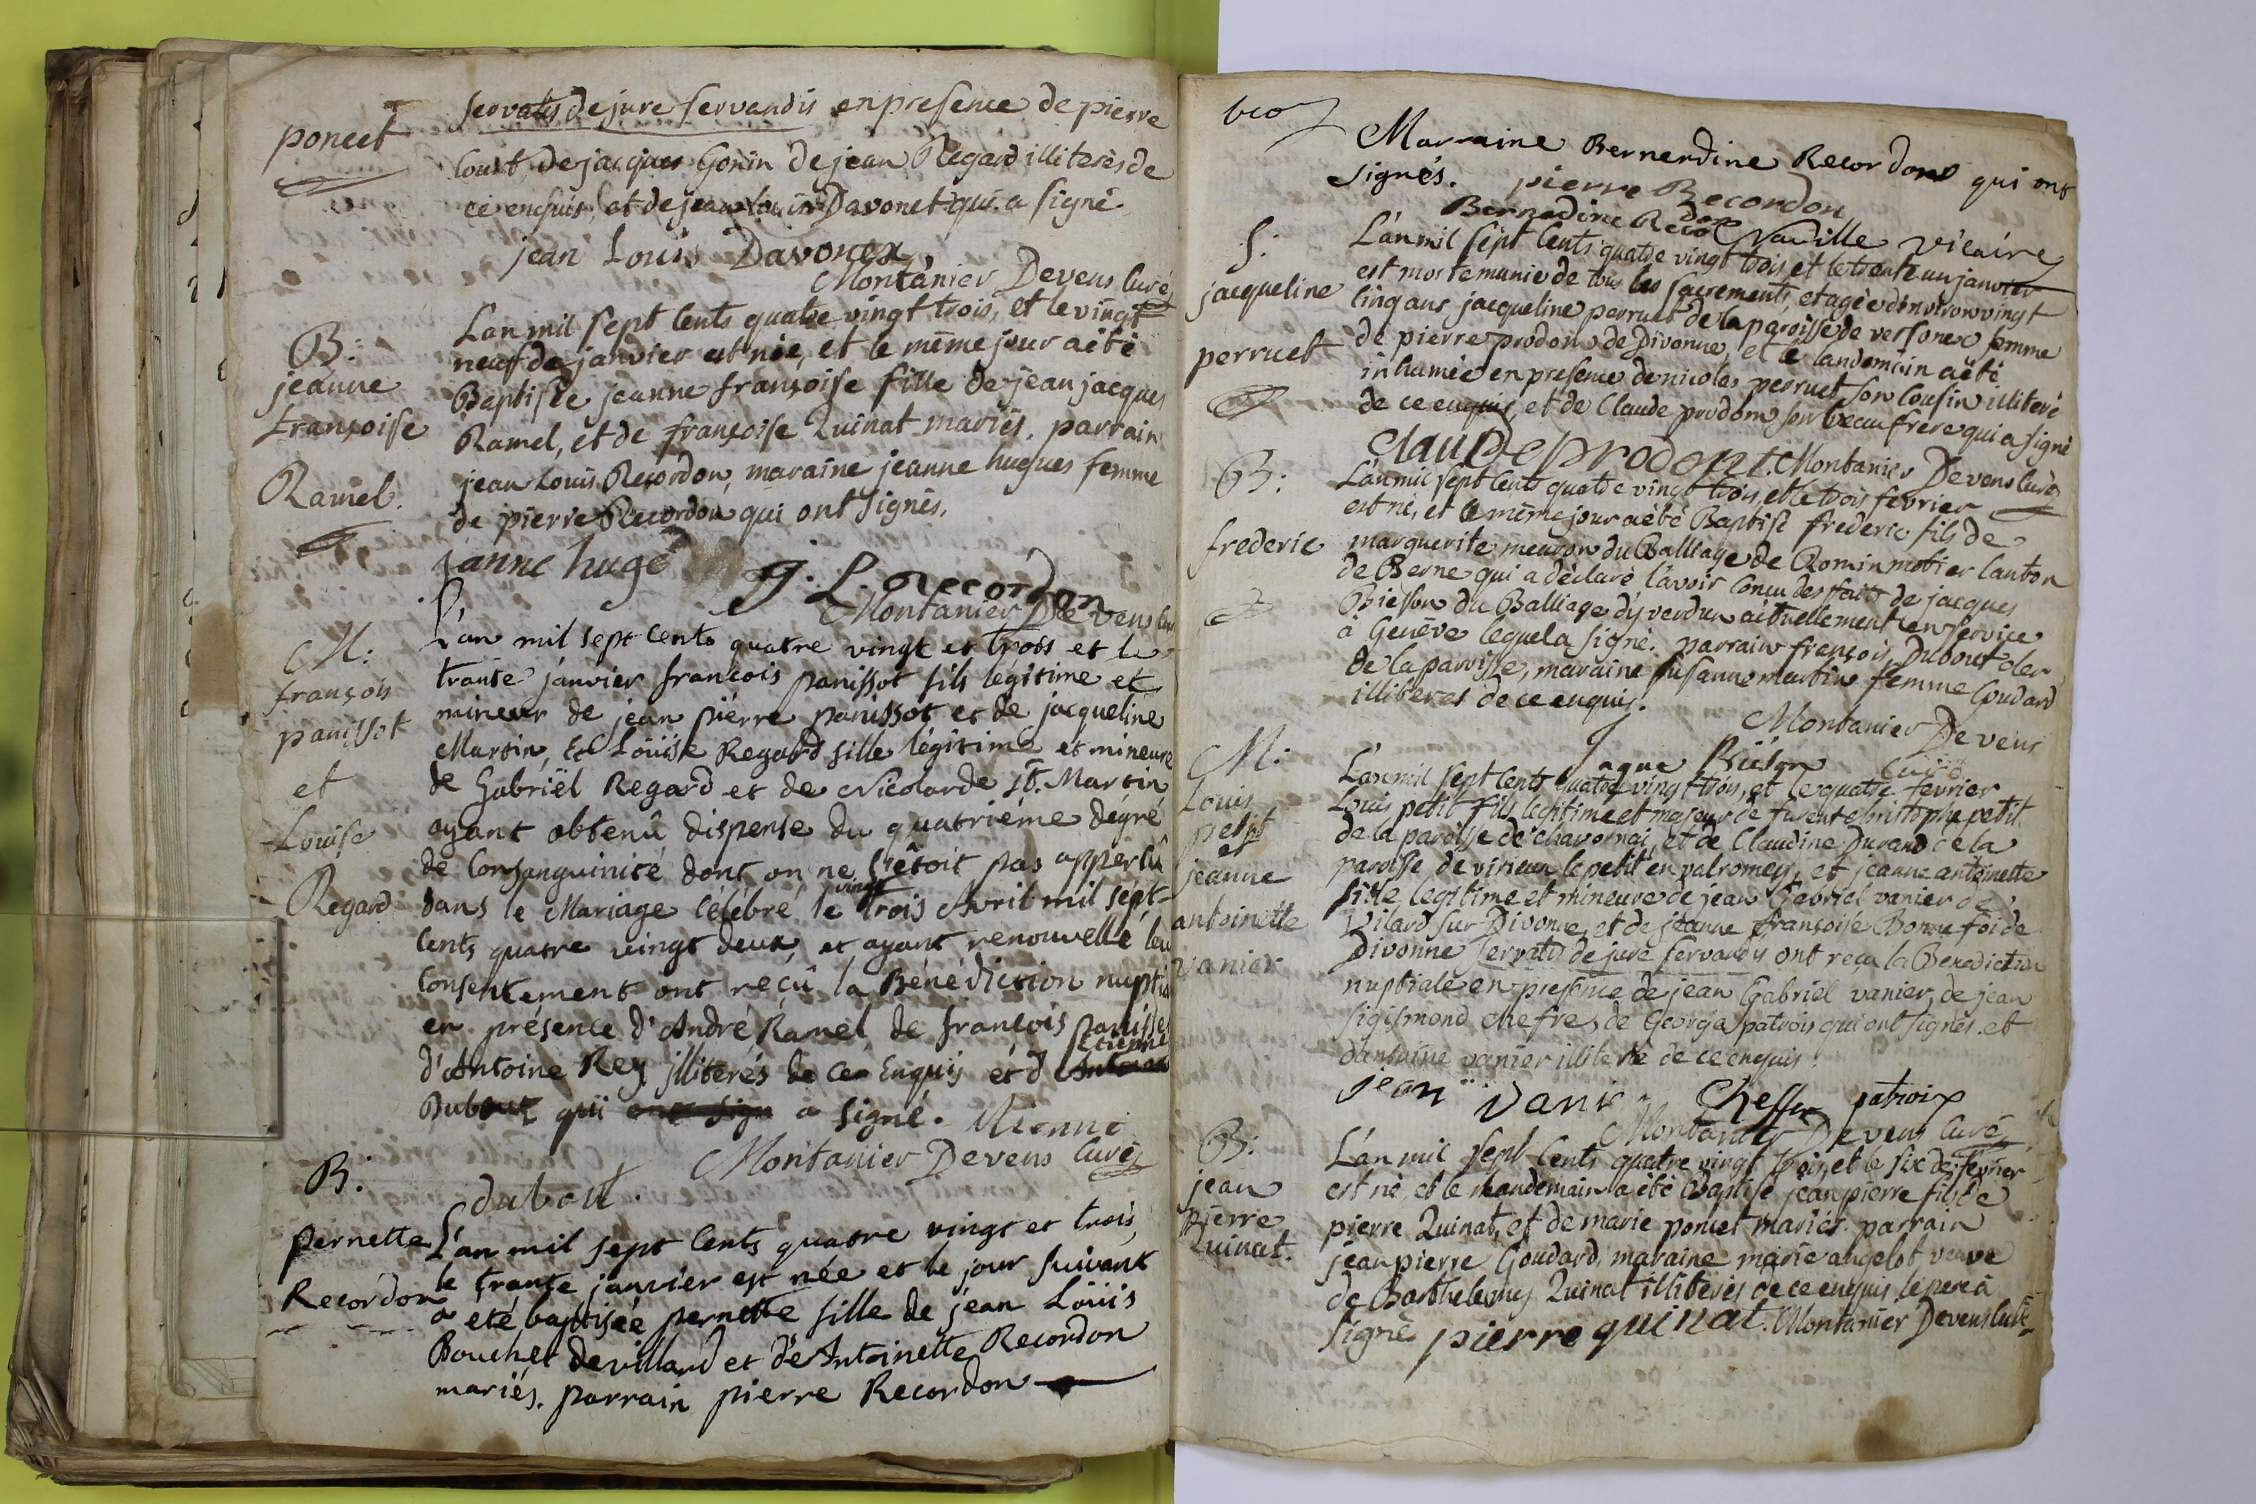 poncet
servatis de jure servandis en presence de pierre
de jacques Gonin de jean Regard illiterés de
ce enquis, et de jean louis Davonet qui a signé
jean Louis Davonex
Montanier Devens Curé
B:
jeanne
françoise
Ramel.
L'an mil sept cents quatre vingt trois, et le vingt
neuf de janvier est née, et le même jour a été
Baptisée jeanne françoise fille de jean jacques
Ramel, et de françoise Quinat mariés. parrain
jean Louis Recordon, maraine jeanne hugues femme
de pierre Recordon qui ont signés.
janne huge
J. L. Recordon
Montanier Devens
M:
françois
panissot
et
Louise
Regard
L'an mil sept cents quatre vingt et trois et le
trante janvier francois panissot fils légitime et
mineur de jean pierre panissot et de jacqueline
Martin, Et Loüise Regard fille légitime et mineure
de Gabriël Regard et de Nicolarde St. Martin
ayant obtenû dispense du quatriéme dégré
de Consanguinité dont on ne s'étoit pas apperçû
dans le Mariage célébré le vingt trois Avril mil sept-
Cents quatre vingt deux, et ayant renouvellé leu
Consentement ont reçû la Bénédiction nuptia
en présence d'André Ramel de françois panisse
d'Antoine Rey illitérés de ce Enquis et d' Etienne
Dubout qui a signé. Etienne
Montanier Devens Curé
dubout.
B:
pernette
Recordon
L'an mil sept Cents quatre vingt et trois,
le trante janvier est née et le jour suivant
a eté baptisée pernette fille de jean Löüis
Bouchet de villard et d'Antoinette Recordon
mariés. parrain pierre Recordon
Marraine Bernerdine Recordon qui ont
signés. pierre Recordon
Bernadine Recordon vicaire
S:
jacqueline
perruet
L'an mil sept Cents quatre vingt trois et le trente un janvier
est morte munie de tous les sacrements, et agée d'environ vingt
cinq ans, jacqueline perruet de la paroisse de versonex femme
de pierre prodon de Divonne, et le landemain a été
inhumée en presence de nicolas perruet son cousin illiteré
de ce enquis, et de Claude prodon son beaufrere qui a signé
Claude prodont. Montanier Devens Curé
B:
frederic
L'an mil sept cents quatre vingt trois, et le trois fevrier
est né, et le même jour a été Baptisé frederic fils de
marguerite meuron du Balliage de Rominmotier Canton
de Berne qui a déclaré l'avoir Concu des faits de jacques
Bieson du Balliage d'yverdun actuellement en service
à Genêve lequel a signé. parrain françois Dubout cler
de la paroisse, maraine susanne martin femme Goudard
illiterés de ce enquis.
Montanier Devens
Jaque Curé
M:
Louis
petit
et
jeanne
antoinette
vanier
L'an mil sept Cents quatre vingt trois, et le quatre fevrier
Louis petit fils legitime et majeur de furent christophe petit
de la paroisse de chavornai, et de Claudine Durand de la
paroisse de virieux le petit en valromey, et jeanne antoinette
fille legitime et mineure de jean Gabriel vanier de
Vilard sur Divonne, et de jeanne françoise Bonne foi de
Divonne servatis de jure servandis ont reçu la Benediction
nuptiale en presence de jean Gabriel vanier, de jean
sigismond chefre, de George patrois qui ont signés et
d'antoine vanier illiteré de ce enquis.
jean Vanir Cheffre patroix
Montanier Devens Curé
B:
jean
pierre
Quinat.
L'an mil sept cents quatre vingt trois, et le six de fevrier
est né, et le landemain a été Baptisé jean pierre fils de
pierre Quinat, et de marie poncet mariés. parrain
jean pierre Goudard, maraine marie angelot veuve
de Barthelemy Quinat illiterés de ce enquis le pere à
signé pierre quinat. Montanier Devens Curé